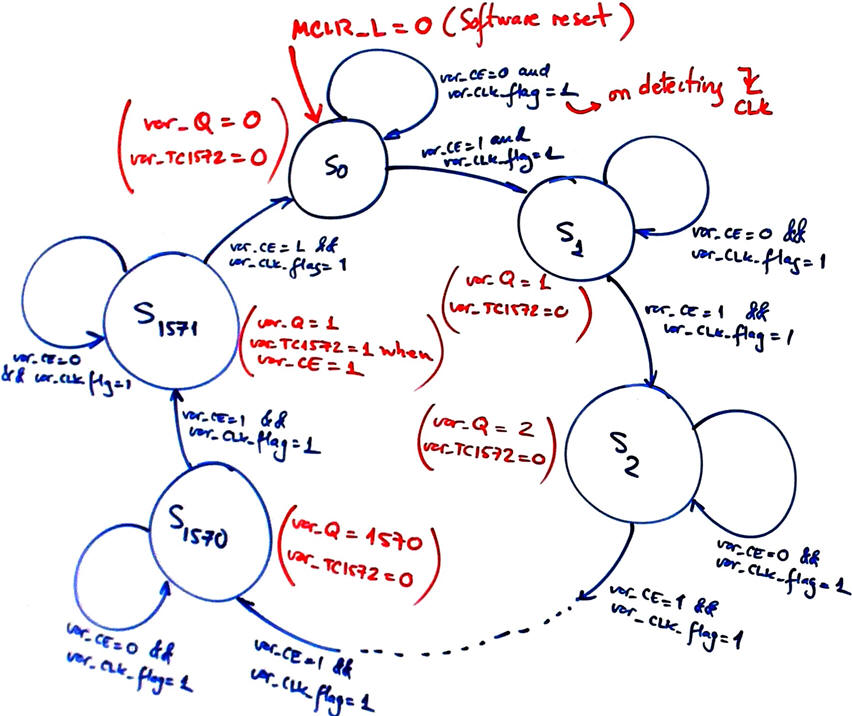 MCLR_L = 0 (Software reset)
var_CE=0 and
var_CLK_flag=1
on detecting
CLK
var_Q = 0
var_TC1572 = 0
S0
var_CE=1 and
var_CLK_flag=1
S1
var_CE=0 &&
var_CLK_flag=1
var_Q = 1
var_TC1572=0
var_CE=1 &&
var_CLK_flag=1
S2
var_Q = 2
var_TC1572=0
var_CE=0 &&
var_CLK_flag=1
var_CE=1 &&
var_CLK_flag=1
var_CE=1 &&
var_CLK_flag=1
S1570
var_Q = 1570
var_TC1572=0
var_CE=0 &&
var_CLK_flag=1
var_CE=1 &&
var_CLK_flag=1
S1571
var_Q = 1
var_TC1572=1 when
var_CE=1
var_CE=0
&& var_CLK_flg=1
var_CE=1 &&
var_CLK_flag=1